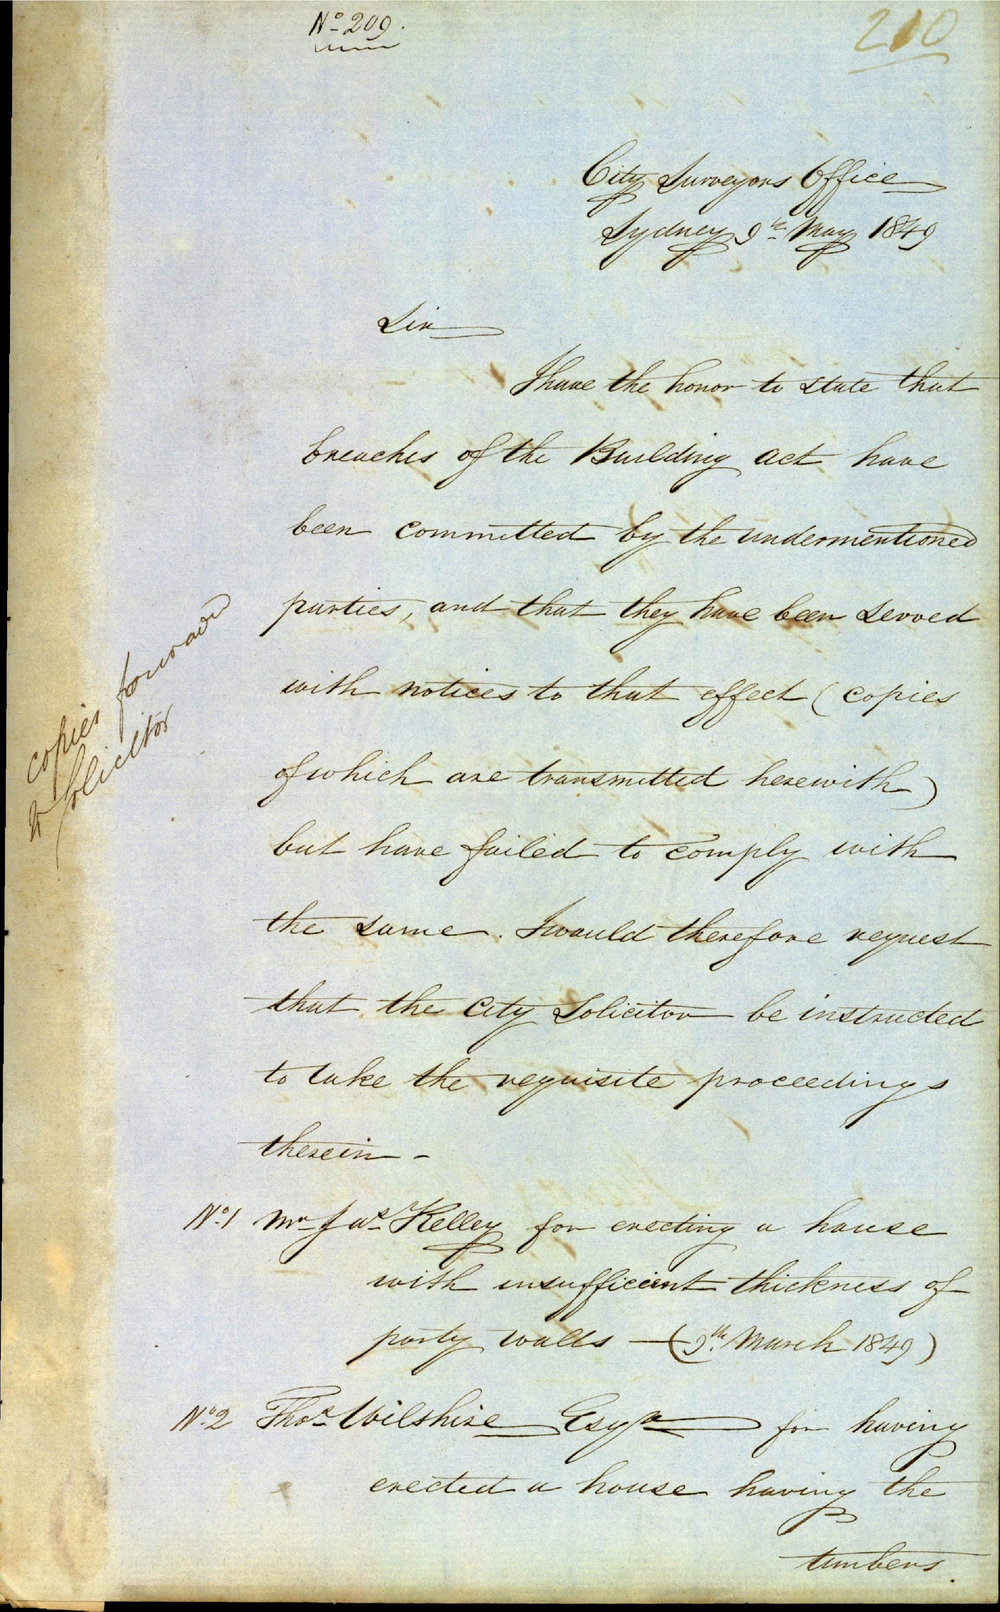 No 209.
210
City Surveyors Office
Sydney 9th May 1849
Sir
I have the honor to state that
breaches of the Building Act have
been committed by the undermentioned
parties, and that they have been served
with notices to that effect (copies
of which are transmitted herewith)
but have failed to comply with
the same. I would therefore request
that the City Solicitor be instructed
to take the requisite proceedings
therein -
copies forwarded
to Solicitor
No. 1 Mr Jas Kelley for erecting a house
with insufficient thickness of
party walls — (9th March 1849)
No. 2 Thos Wilshire Esqr for having
erected a house having the
timbers